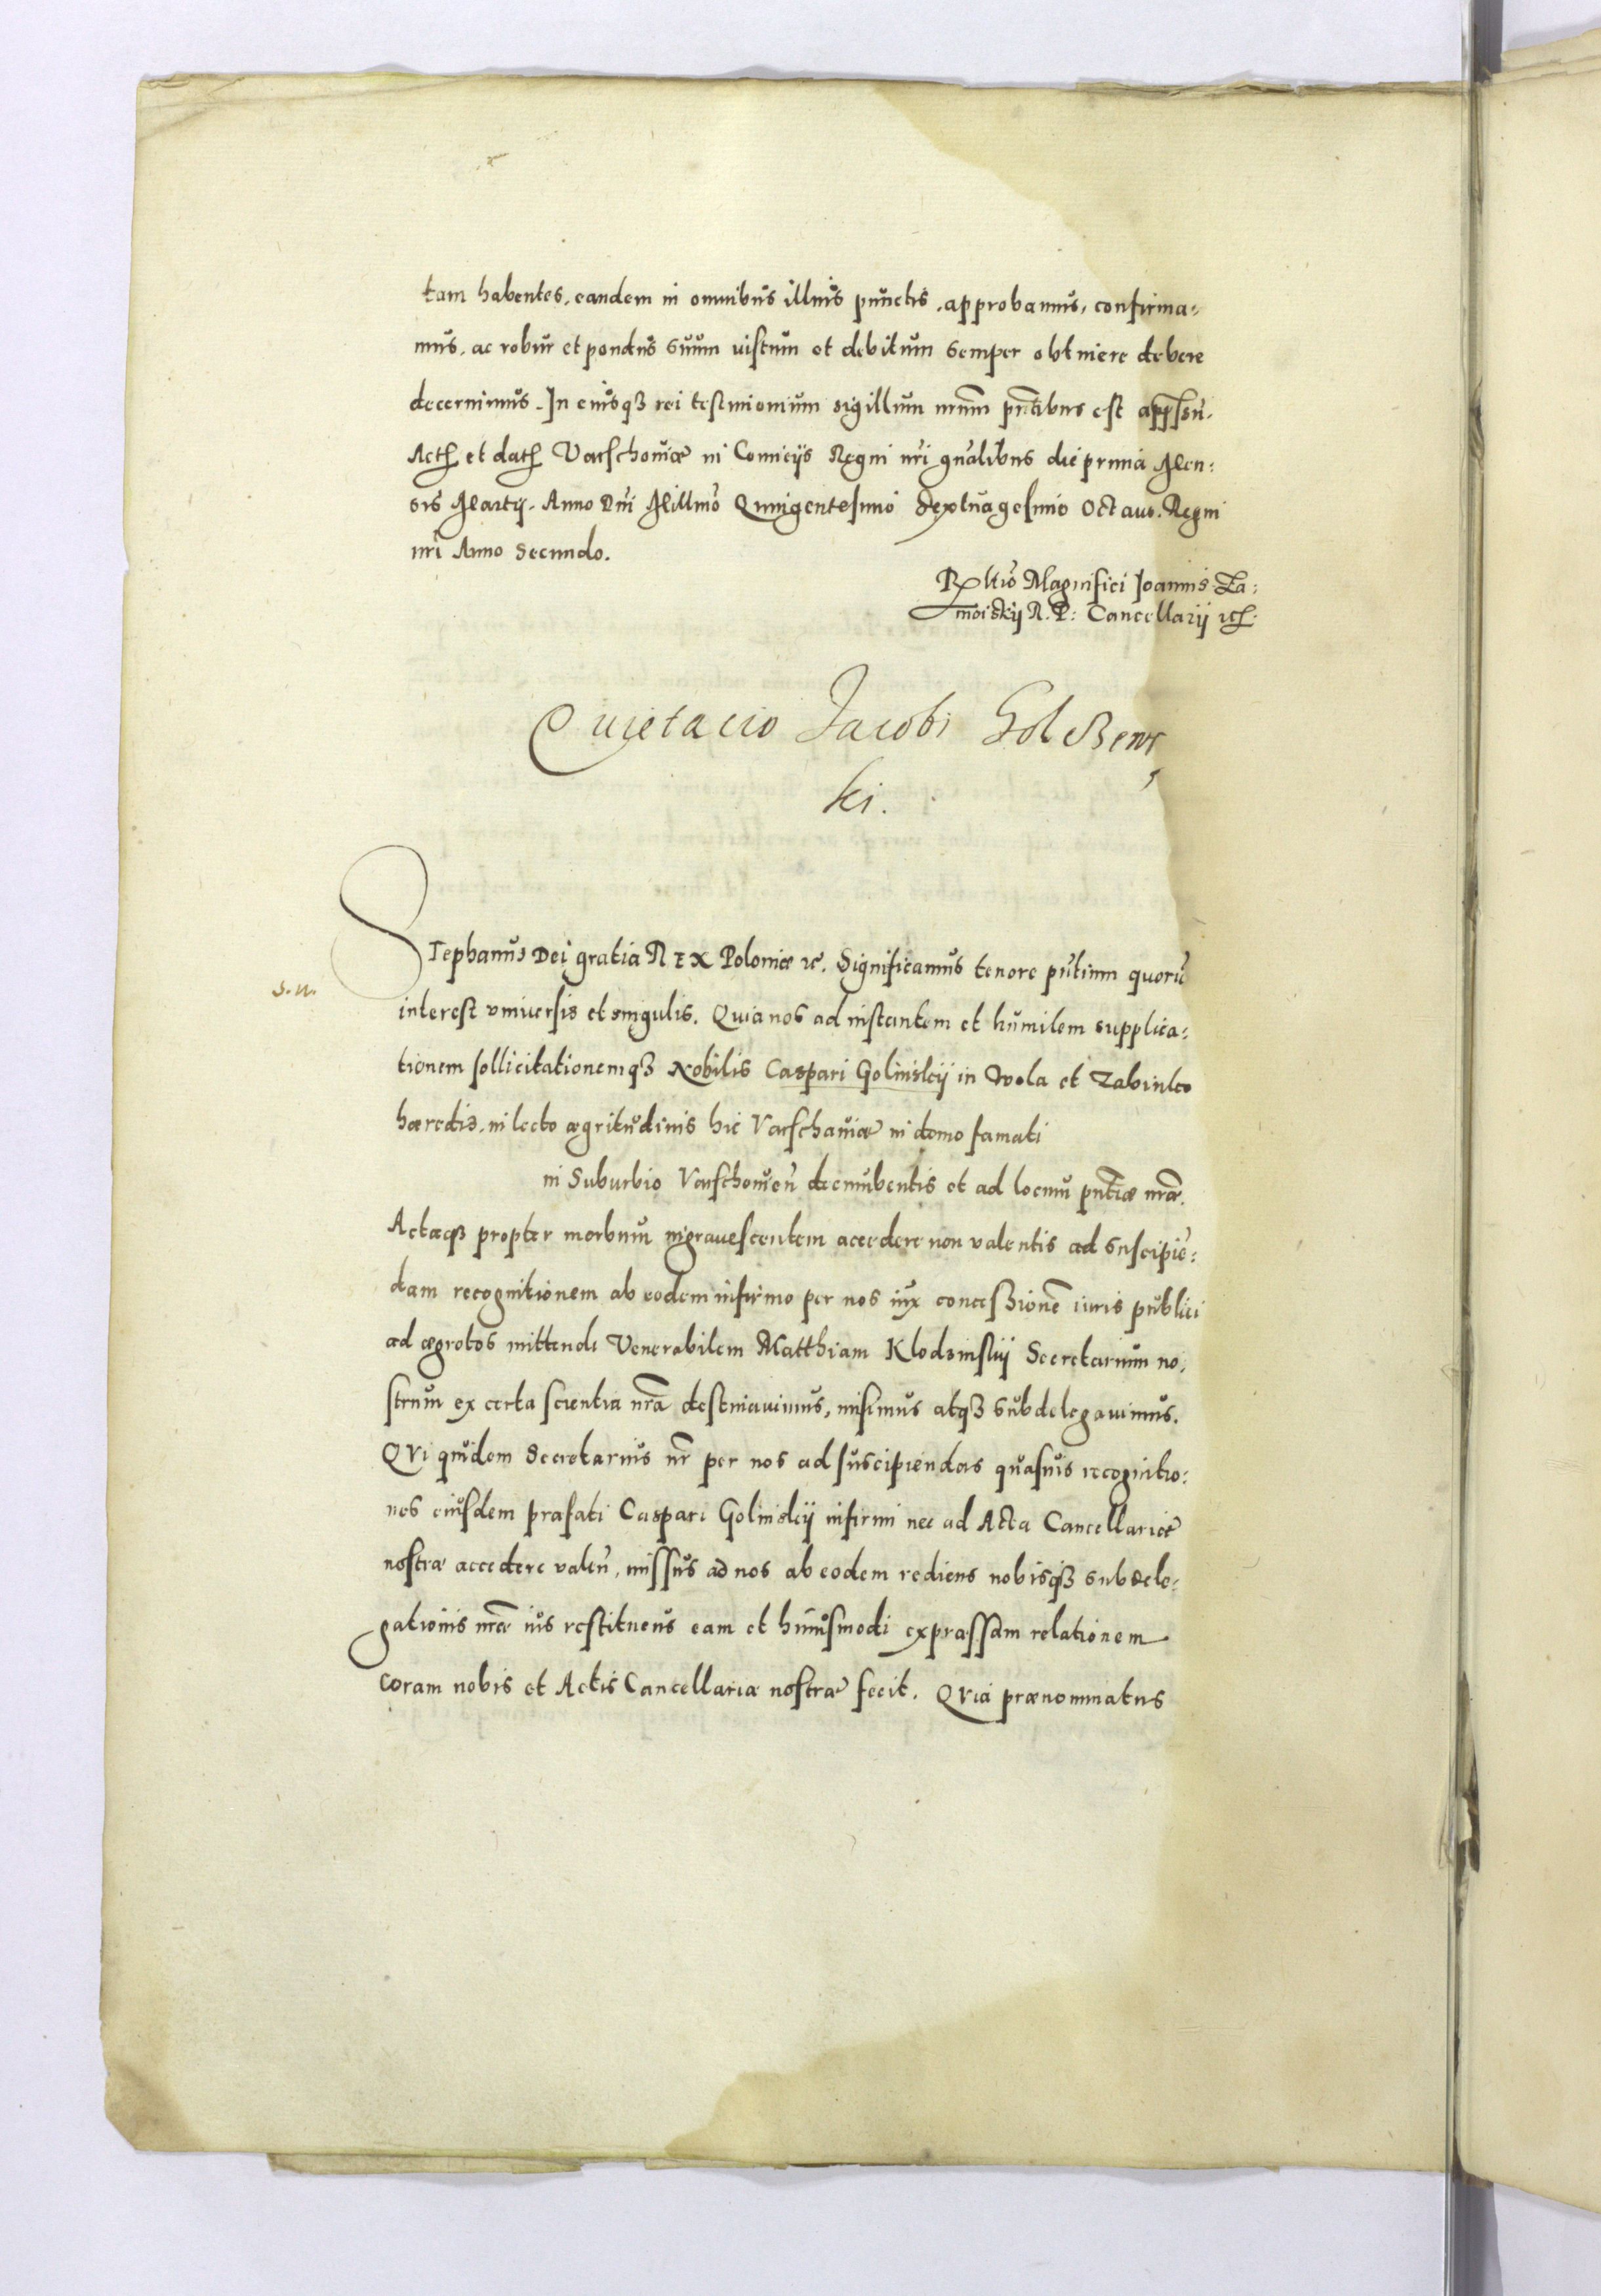 tam habentes, eandem in omnibus illius punctis, approbamus, confirma-
mus, ac robur et pondus suum iustum et debitum semper obtinere debere
decernimus. In cuiusq3 rei testimonium sigillum nrum pntibus est appssū.
Act et dat Varschoviæ in Comicijs Regni nri gnalibus die prima Men:
sis Martij. Anno Dni Millmo Quingentesimo Septuagesimo Octavo. Regni
nri Anno Secundo.
Rltio Magnifici Joannis Za:
moiskij R. P: Cancellarij etc.
Quietacio Jacobi Golbens
ki.
Stephanus Dei gratia REX Poloniæ etc. Significamus tenore pntium quorū
s.n.
interest universis et singulis. Quia nos ad instantem et humilem supplica:
tionem sollicitationemq3 Nobilis Caspari Golinskij in Wola et Zabinko
hæredis, in lecto ægritudinis hic Varschaviæ in domo famati
in Suburbio Varschovien decumbentis et ad locum pntiæ nræ.
Actaq3 propter morbum ingravescentem accedere non valentis ad suscipiē:
dam recognitionem ab eodem infirmo per nos iux concessionē iuris publici
ad ægrotos mittendi Venerabilem Matthiam Klodzinskij Secretarium no,
strum ex certa scientia nra destinavimus, misimus atq3 subdelegavimus.
Qui quidem Secretarius nr per nos ad suscipiendas quasvis recognitio:
nes eiusdem præfati Caspari Golinskij infirmi nec ad Acta Cancellariæ
nostræ accedere valen, missus ad nos ab eodem rediens nobisq3 subdele:
gationis nræ ius restituens eam et huiusmodi expressam relationem
coram nobis et Actis Cancellariæ nostræ fecit. Quia prænominatus